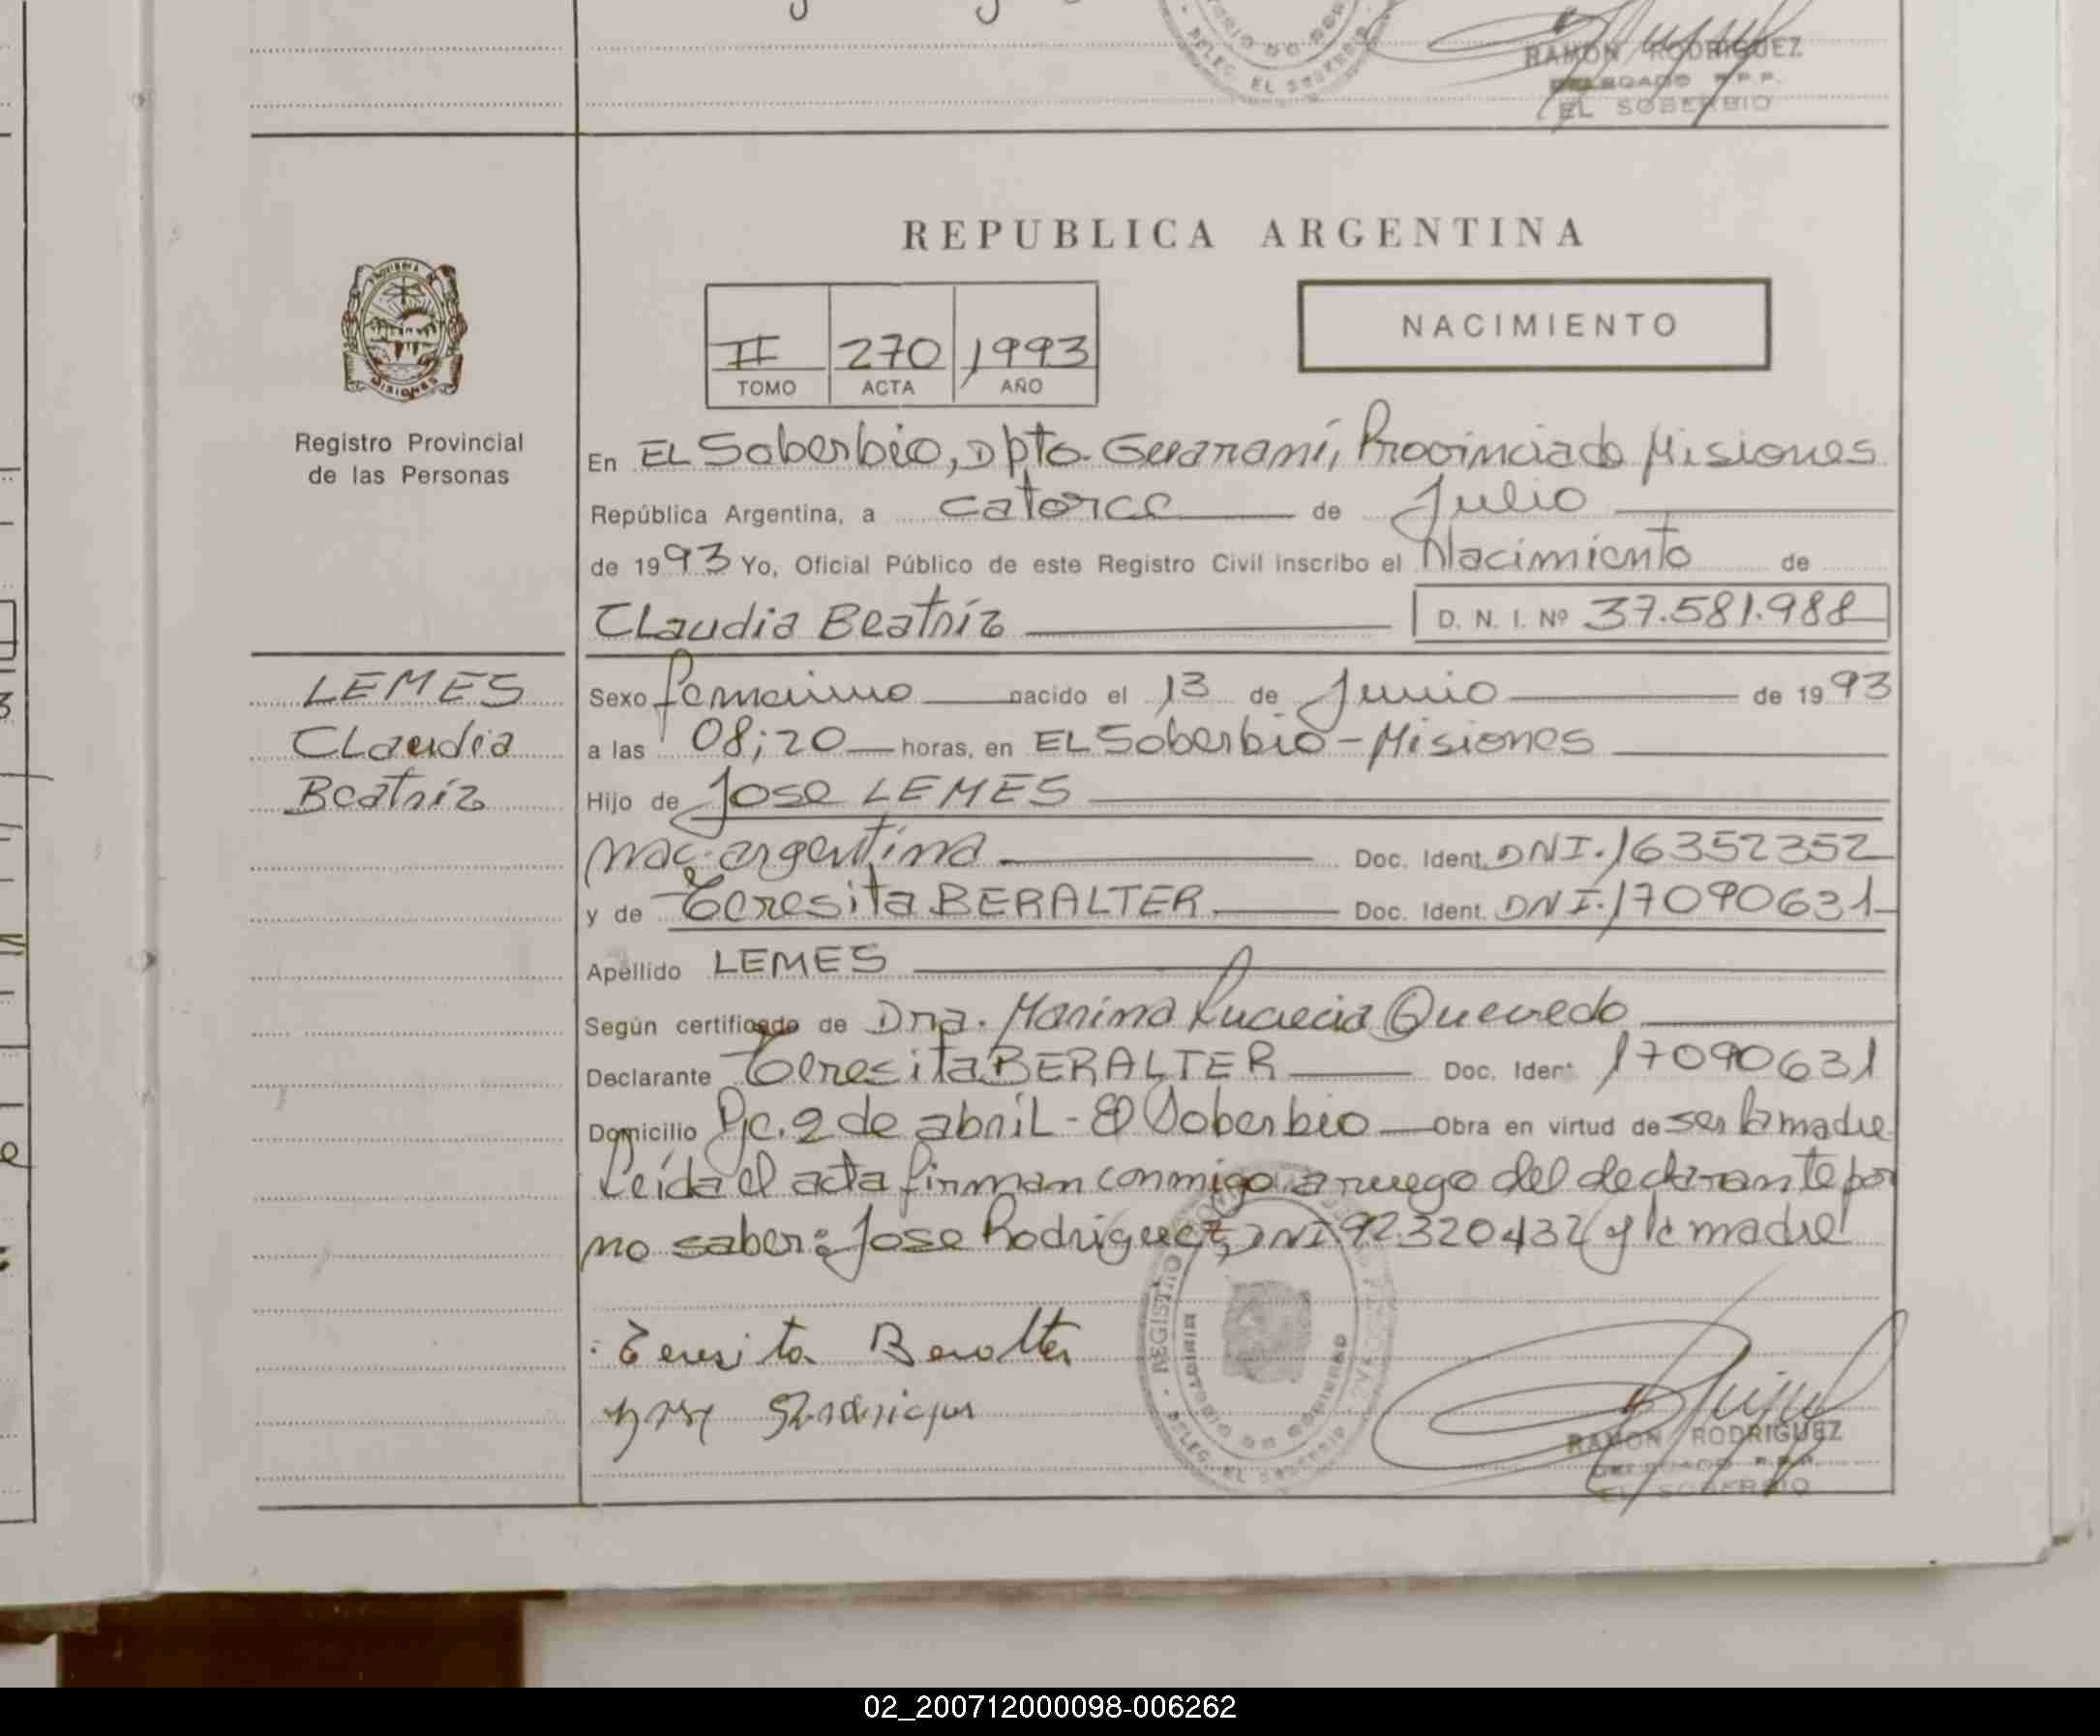 RAMON RODRIGUEZ
DELEGADO R.P.P.
EL SOBERBIO
DELEG. EL SOBERBIO
REPUBLICA ARGENTINA
PROVINCIA DE
MISIONES
Registro Provincial
de las Personas
II 270 1993
TOMO ACTA AÑO
NACIMIENTO
En EL Soberbio, Dpto. Guaraní, Provincia de Misiones
República Argentina, a catorce de Julio
de 1993 Yo, Oficial Público de este Registro Civil inscribo el Nacimiento de
CLaudia Beatríz D. N. I. Nº 37.581.988
LEMES
CLaudia
Beatríz
Sexo femenino nacido el 13 de Junio de 1993
a las 08;20 horas, en EL Soberbio - Misiones
Hijo de Jose LEMES
nac. argentina Doc. Ident. DNI. 16352352
y de Teresita BERALTER Doc. Ident. DNI. 17090631
Apellido LEMES
Según certificado de Dra. Marina Lucrecia Quevedo
Declarante Teresita BERALTER Doc. Ident 17090631
Domicilio Pje. 2 de abril - El Soberbio Obra en virtud de ser la madre
Leída el acta firman conmigo a ruego del declarante por
no saber: Jose Rodriguez, DNI 92320432 y la madre
Teresita Beralter
REGISTRO
DELEG. EL SOBERBIO
RAMON RODRIGUEZ
DELEGADO R.P.P.
EL SOBERBIO
02_200712000098-006262